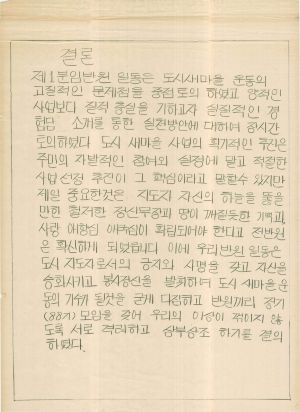 결론
제1분임반원 일동은 도시새마을 운동의
고질적인 문제점을 중점 토의 하였고 양적인
사업보다 질적 충실을 기하고자 실질적인 경
험담 소개를 통한 실천방안에 대하여 장시간
토의하였다 도시 새마을 사업의 획기적인 추진은
주민의 자발적인 참여와 실정에 맞고 적절한
사업선정 추진이 그 핵심이라고 말할수 있지만
제일 중요한것은 지도자 자신의 하늘을 뚫을
만한 철저한 정신무장과 땅이 꺼질듯한 기백과
사랑 애향심 이 확립되어야 한다고 전반원
은 확신하게 되었읍니다 이에 우리반원 일동은
도시 지도자로서의 긍지와 사명을 갖고 자신을
승화시키고 봉사정신을 발휘하며 도시 새마을운
동의 기수가 될것을 굳게 다짐하고 반원끼리 정기
(88기) 모임을 갖어 우리의 이상이 꺾이지 않
도록 서로 격려하고 상부상조 하기를 결의
하였다.